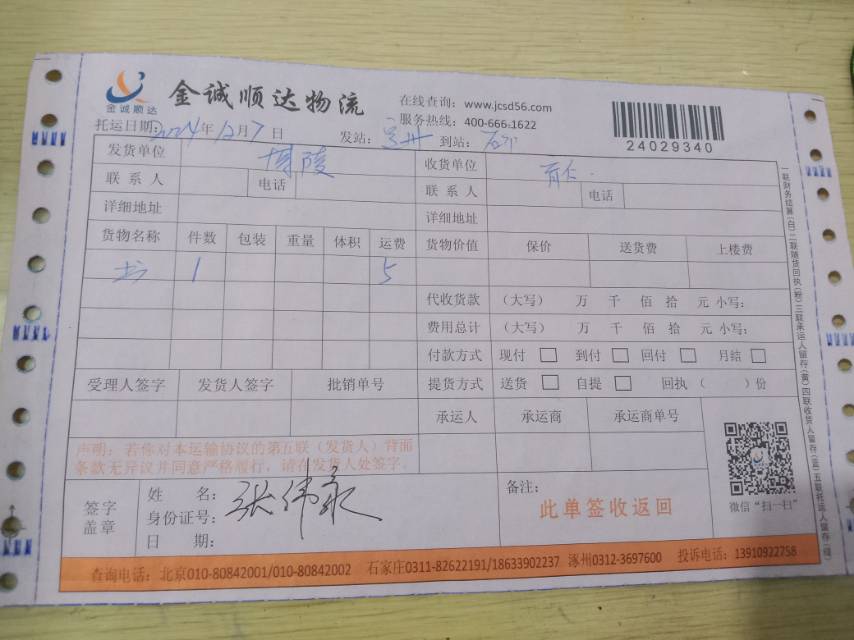 金诚顺达
金诚顺达物流
在线查询：www.jcsd56.com
服务热线：400-666-1622
24029340
托运日期：2024年12月7日 发站： 到站：
发货单位 博陵 收货单位 育仁
联系人 电话 联系人 电话
详细地址 详细地址
货物名称 件数 包装 重量 体积 运费 货物价值 保价 送货费 上楼费
书 1 5
代收货款 （大写） 万 千 佰 拾 元 小写：
费用总计 （大写） 万 千 佰 拾 元 小写：
付款方式 现付 □ 到付 □ 回付 □ 月结 □
受理人签字 发货人签字 批销单号 提货方式 送货 □ 自提 □ 回执 （ ）份
承运人 承运商 承运商单号
声明：若你对本运输协议的第五联（发货人）背面
条款无异议并同意严格履行，请在发货人处签字。
签字
盖章
姓 名：
身份证号：
日 期：
备注：
此单签收返回
微信“扫一扫”
一联财务结算(白)二联随货回执(粉)三联承运人留存(黄)四联收货人留存(蓝)五联托运人留存(绿)
查询电话：北京010-80842001/010-80842002 石家庄0311-82622191/18633902237 涿州0312-3697600 投诉电话：13910922758